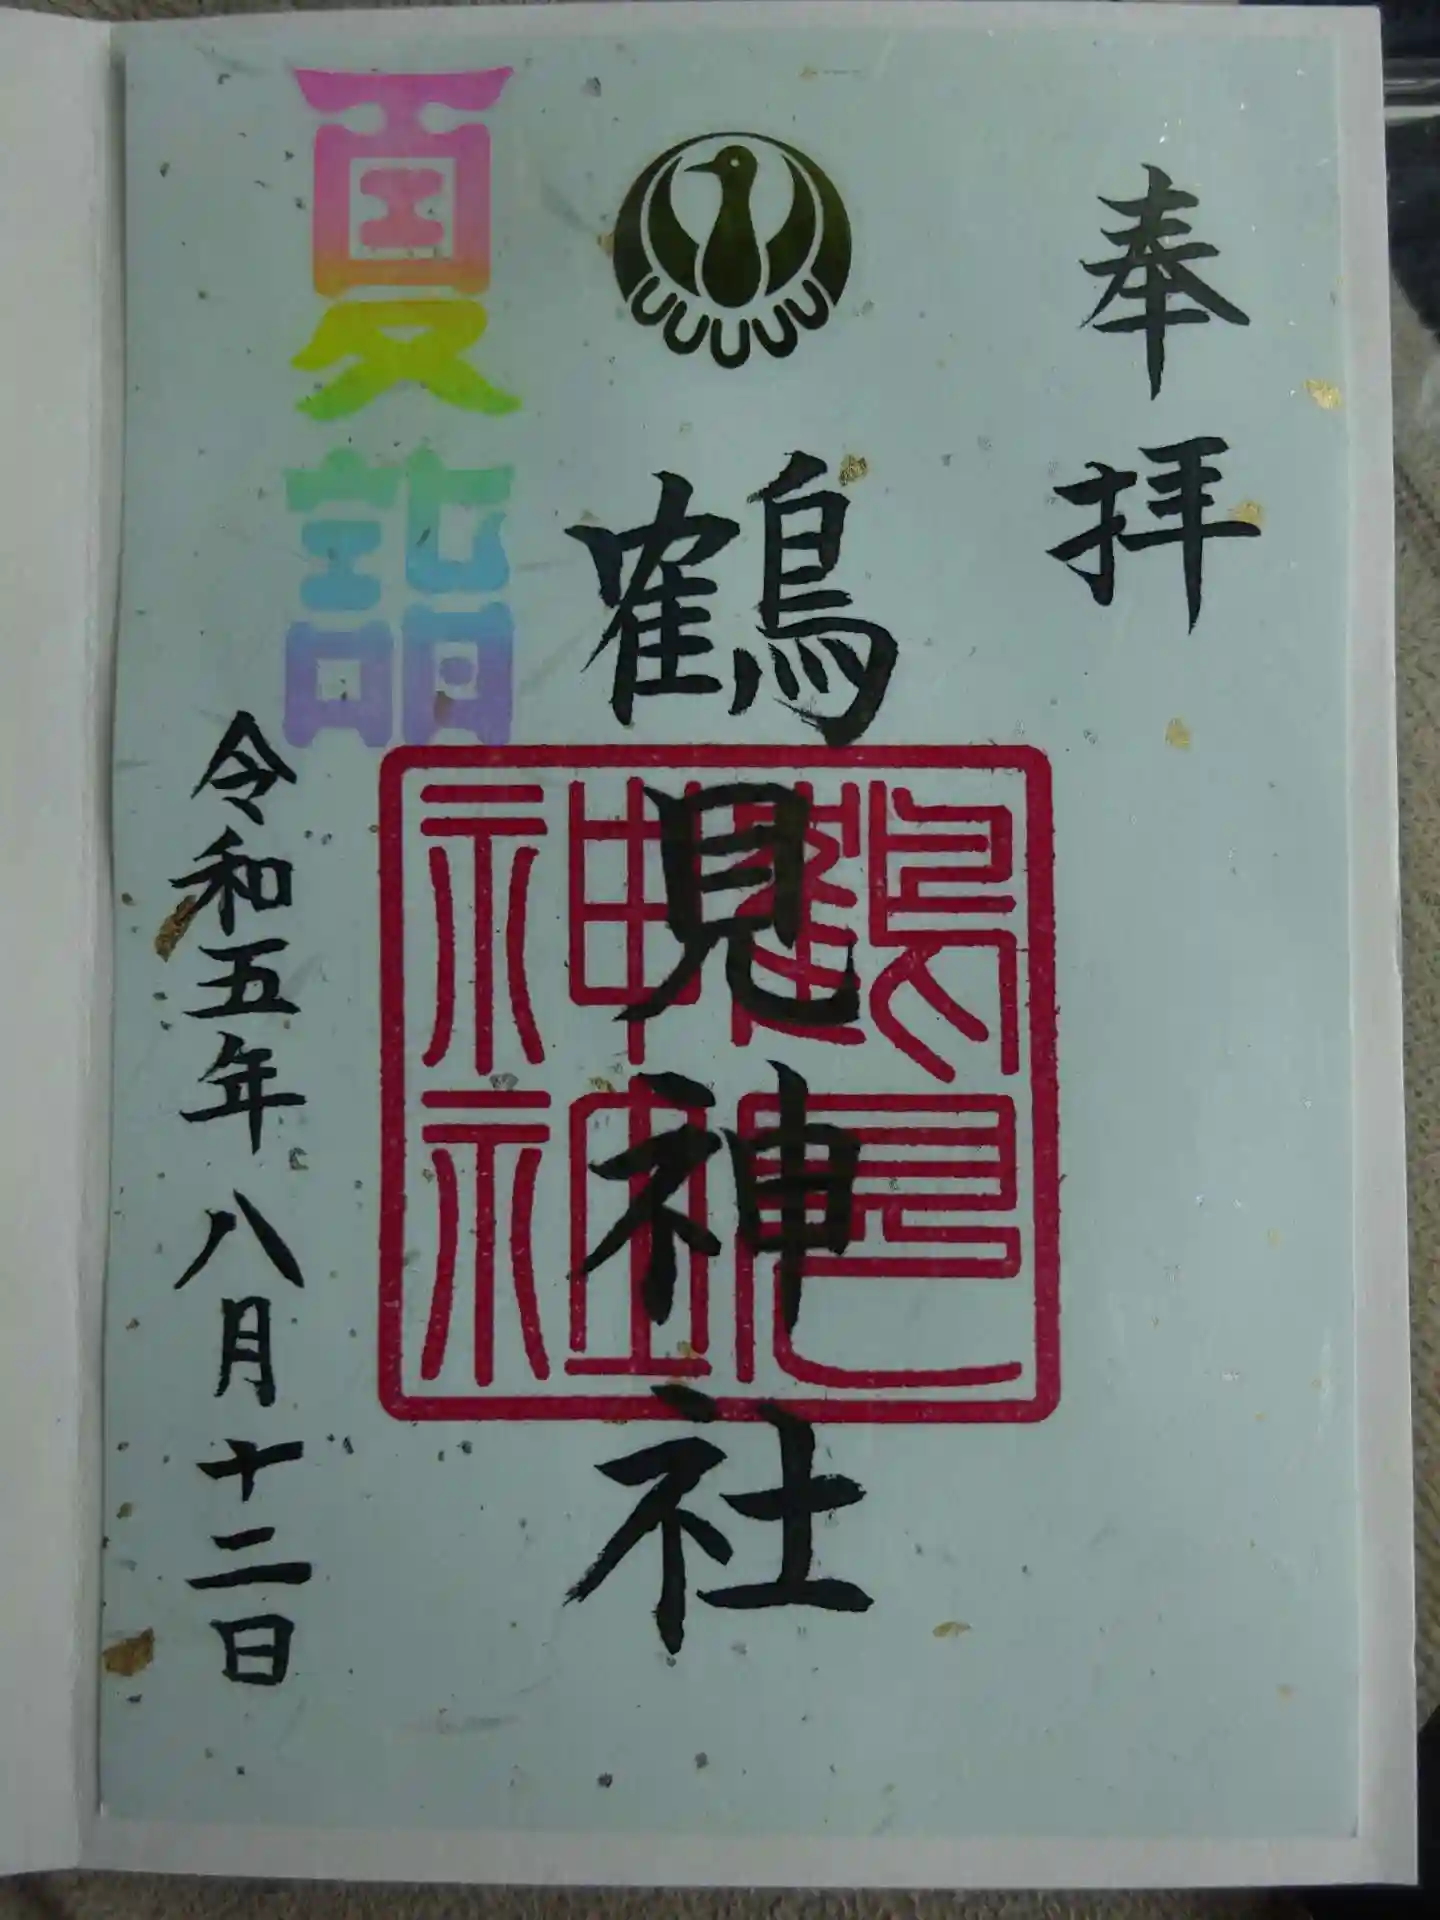 奉拝
鶴見神社
鶴見
神社
夏詣
令和五年八月十二日